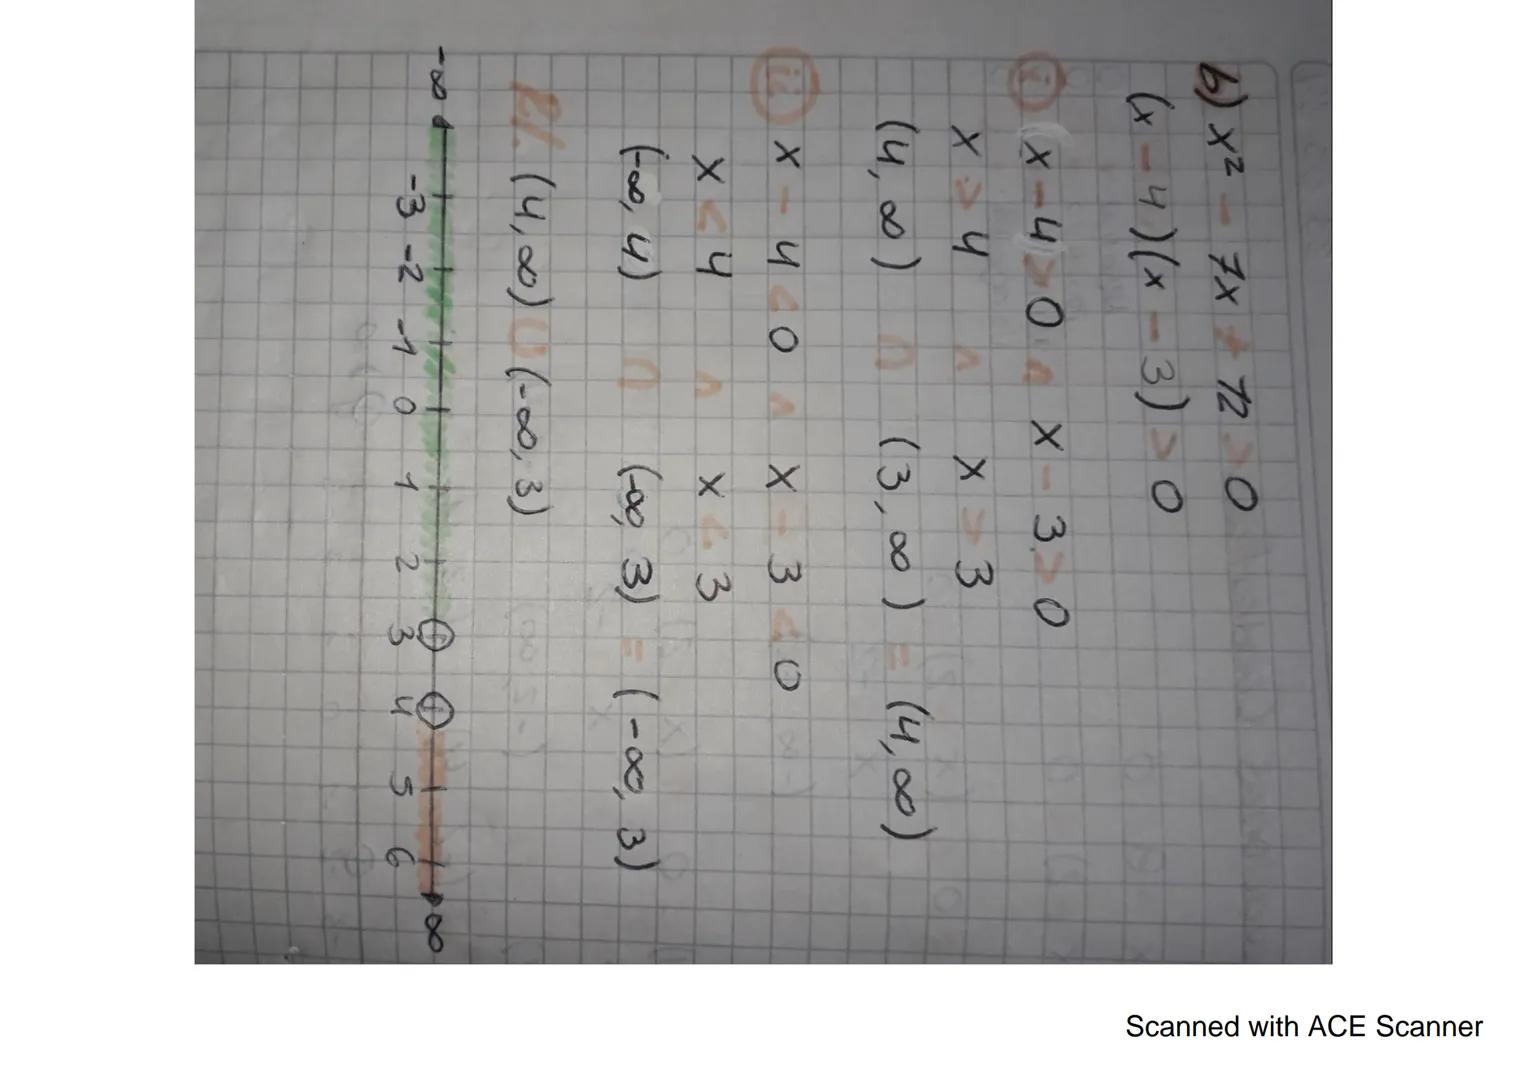 b) x² - 7x + 12 > 0
(x - 4)(x - 3) > 0
i (x - 4) > 0 ∧ x - 3 > 0
x > 4 ∧ x > 3
(4, ∞) ∩ (3, ∞) = (4, ∞)
ii x - 4 < 0 ∧ x - 3 < 0
x < 4 ∧ x < 3
(-∞, 4) ∩ (-∞, 3) = (-∞, 3)
R/. (4, ∞) ∪ (-∞, 3)
-∞ -3 -2 -1 0 1 2 3 4 5 6 ∞
Scanned with ACE Scanner